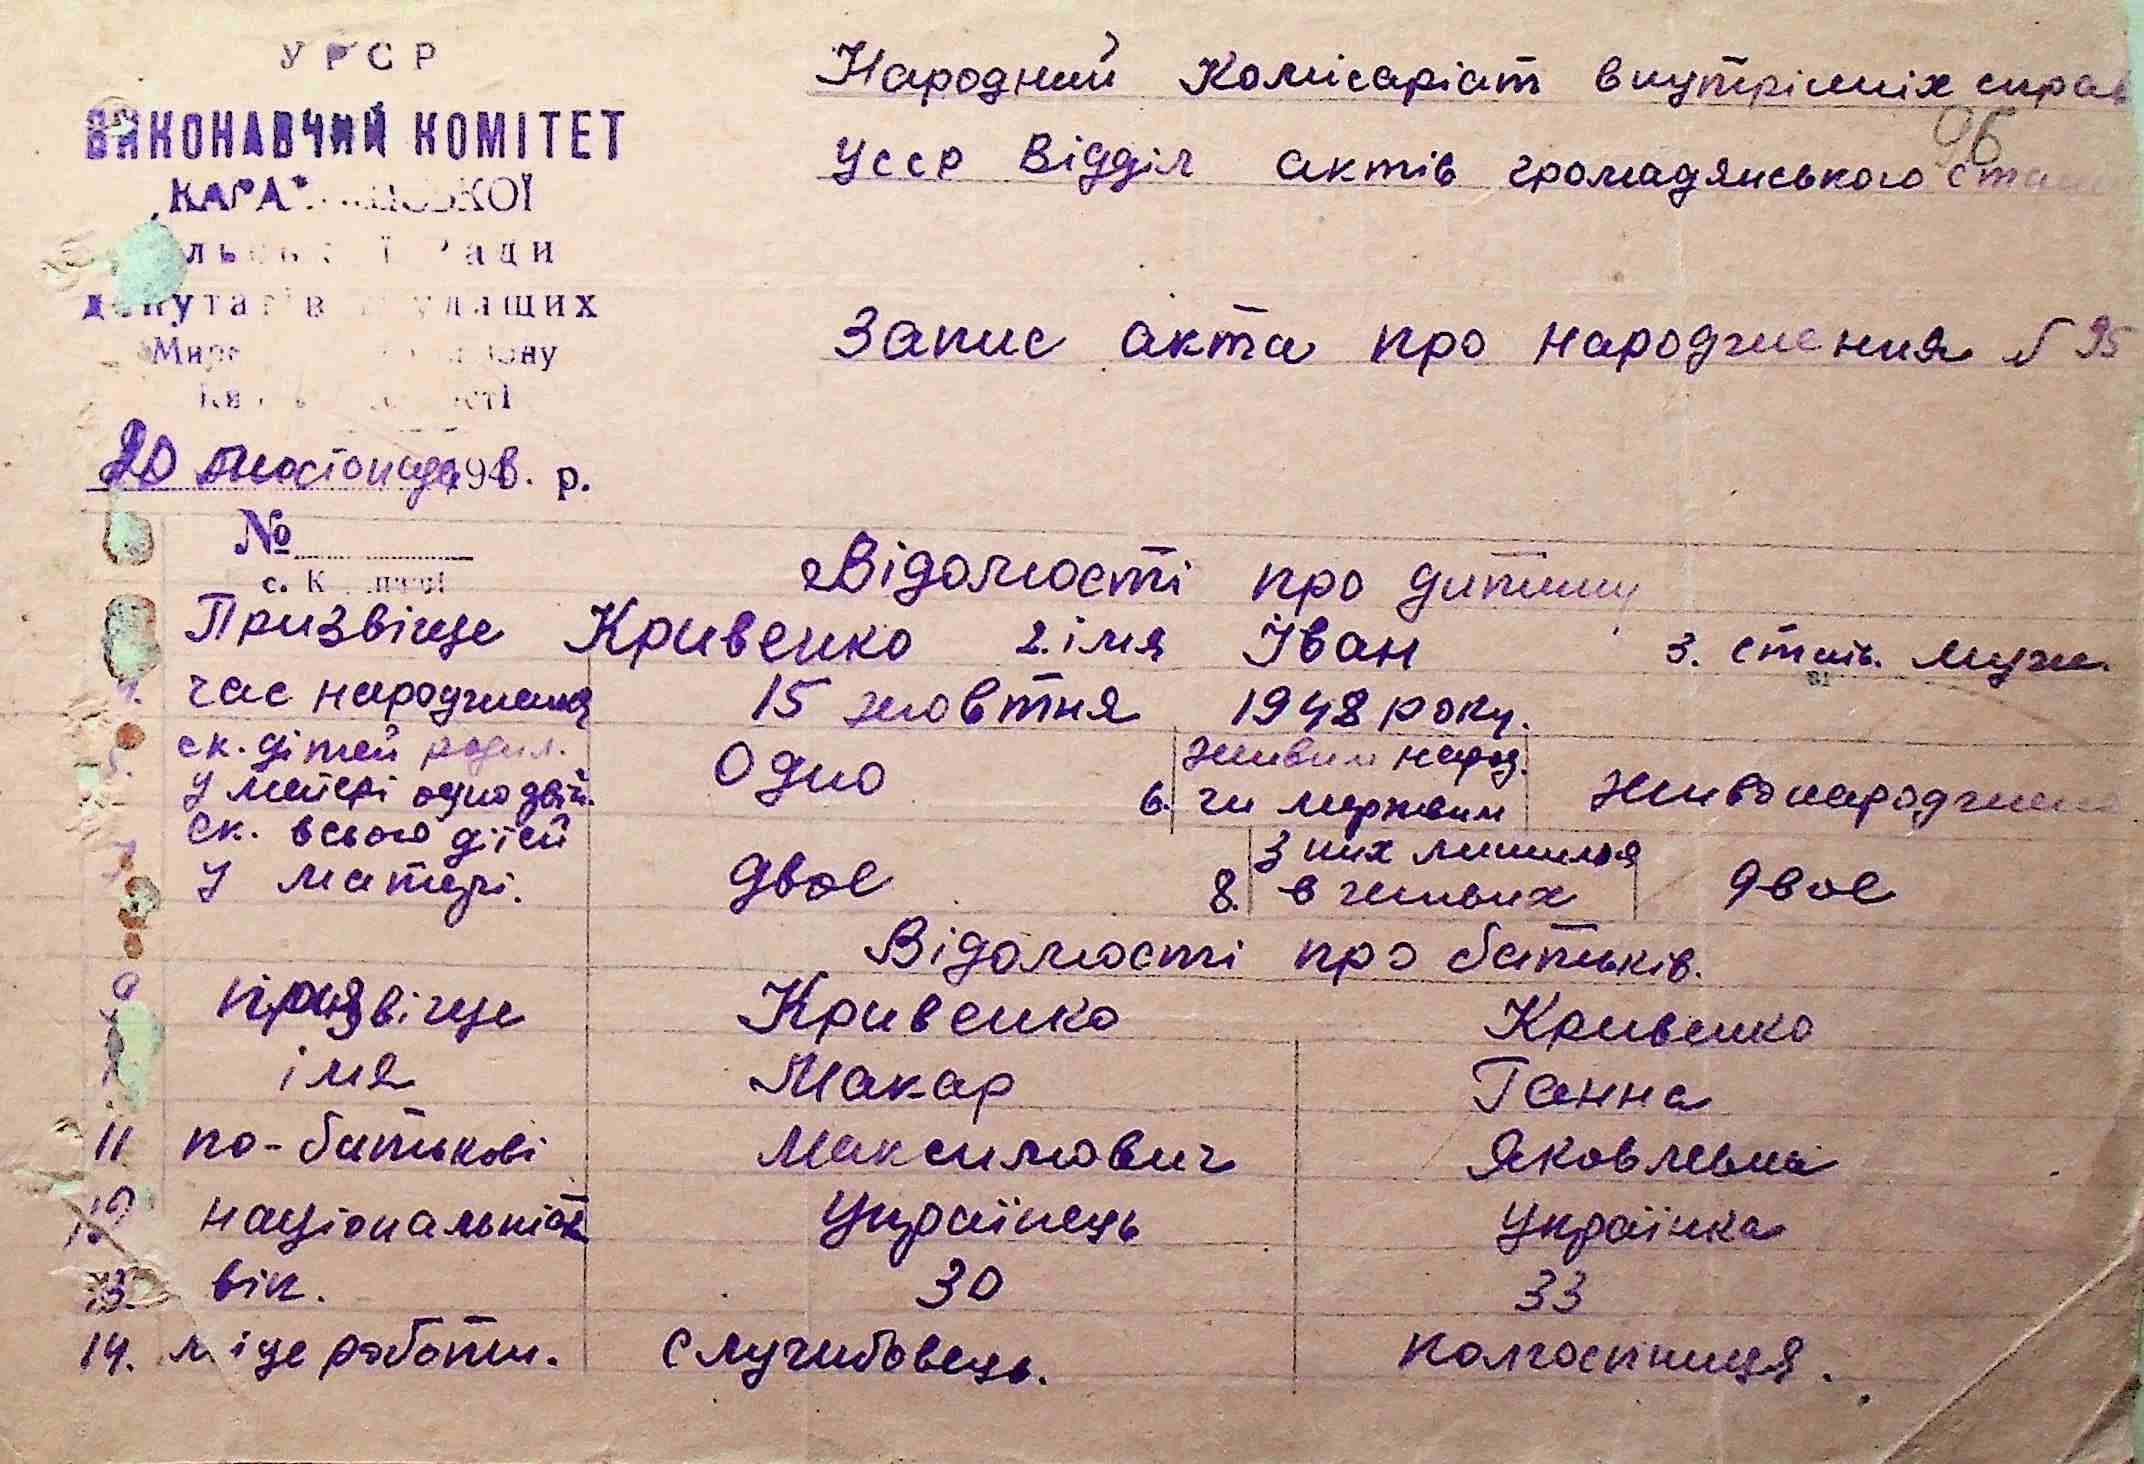 УРСР
ВИКОНАВЧИЙ КОМІТЕТ
Ради
депутатів трудящих
20 листопада 1948. р.
№
с.
Народний Комісаріат внутрішніх справ
УССР Відділ актів громадянського стану
96
Запис акта про народження № 95
Відомості про дитину
Призвіще Кривенко 2. імя Іван 3. стать. муж.
4. час народження 15 жовтня 1948 року.
5. ск. дітей родил. у матері одно двій. Одно 6. живим народ. чи мертвим живонароджено
7. ск. всього дітей у матері. двое 8. з них лишилося в живих двое
Відомості про батьків.
9 призвіще Кривенко Кривенко
імя Макар Ганна
11 по-батькові Максимович Яковлевна
12 національність Українець Українка
13 вік. 30 33
14. місце роботи. Служибовець. колгоспниця.